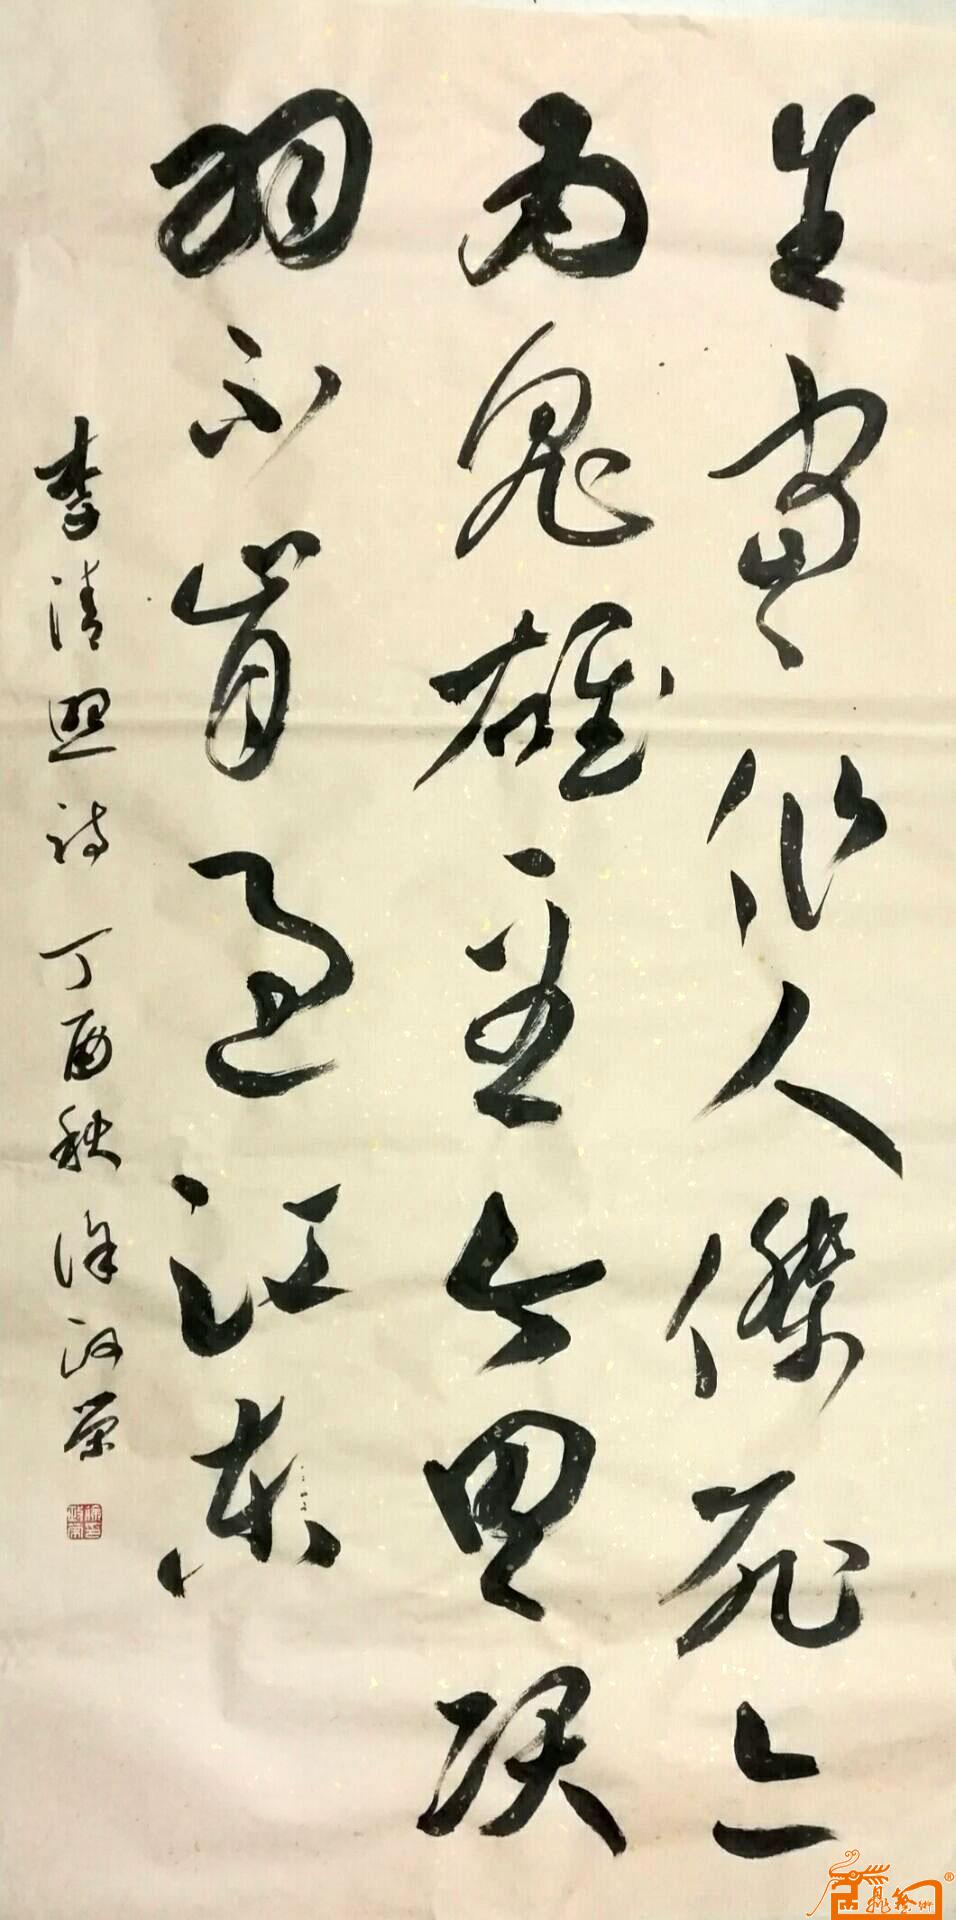 生當作人傑死亦
為鬼雄至今思項
羽不肯過江東
李清照詩 丁酉秋 徐政榮